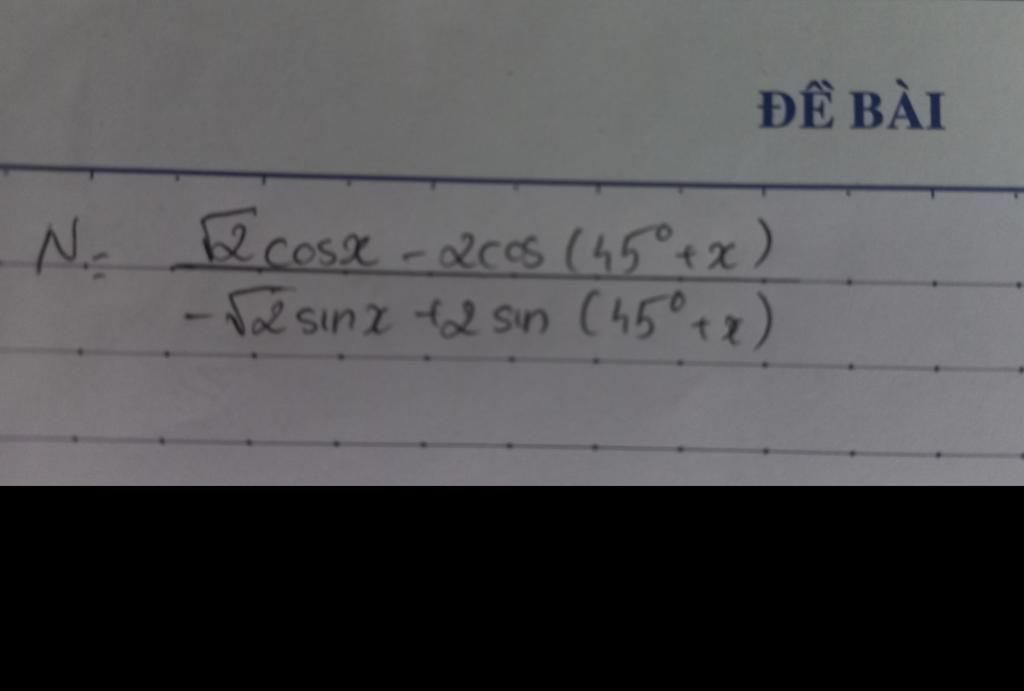 ĐỀ BÀI
N = \frac{\sqrt{2}cosx - 2cos(45° + x)}{-\sqrt{2}sinx + 2sin(45° + x)}